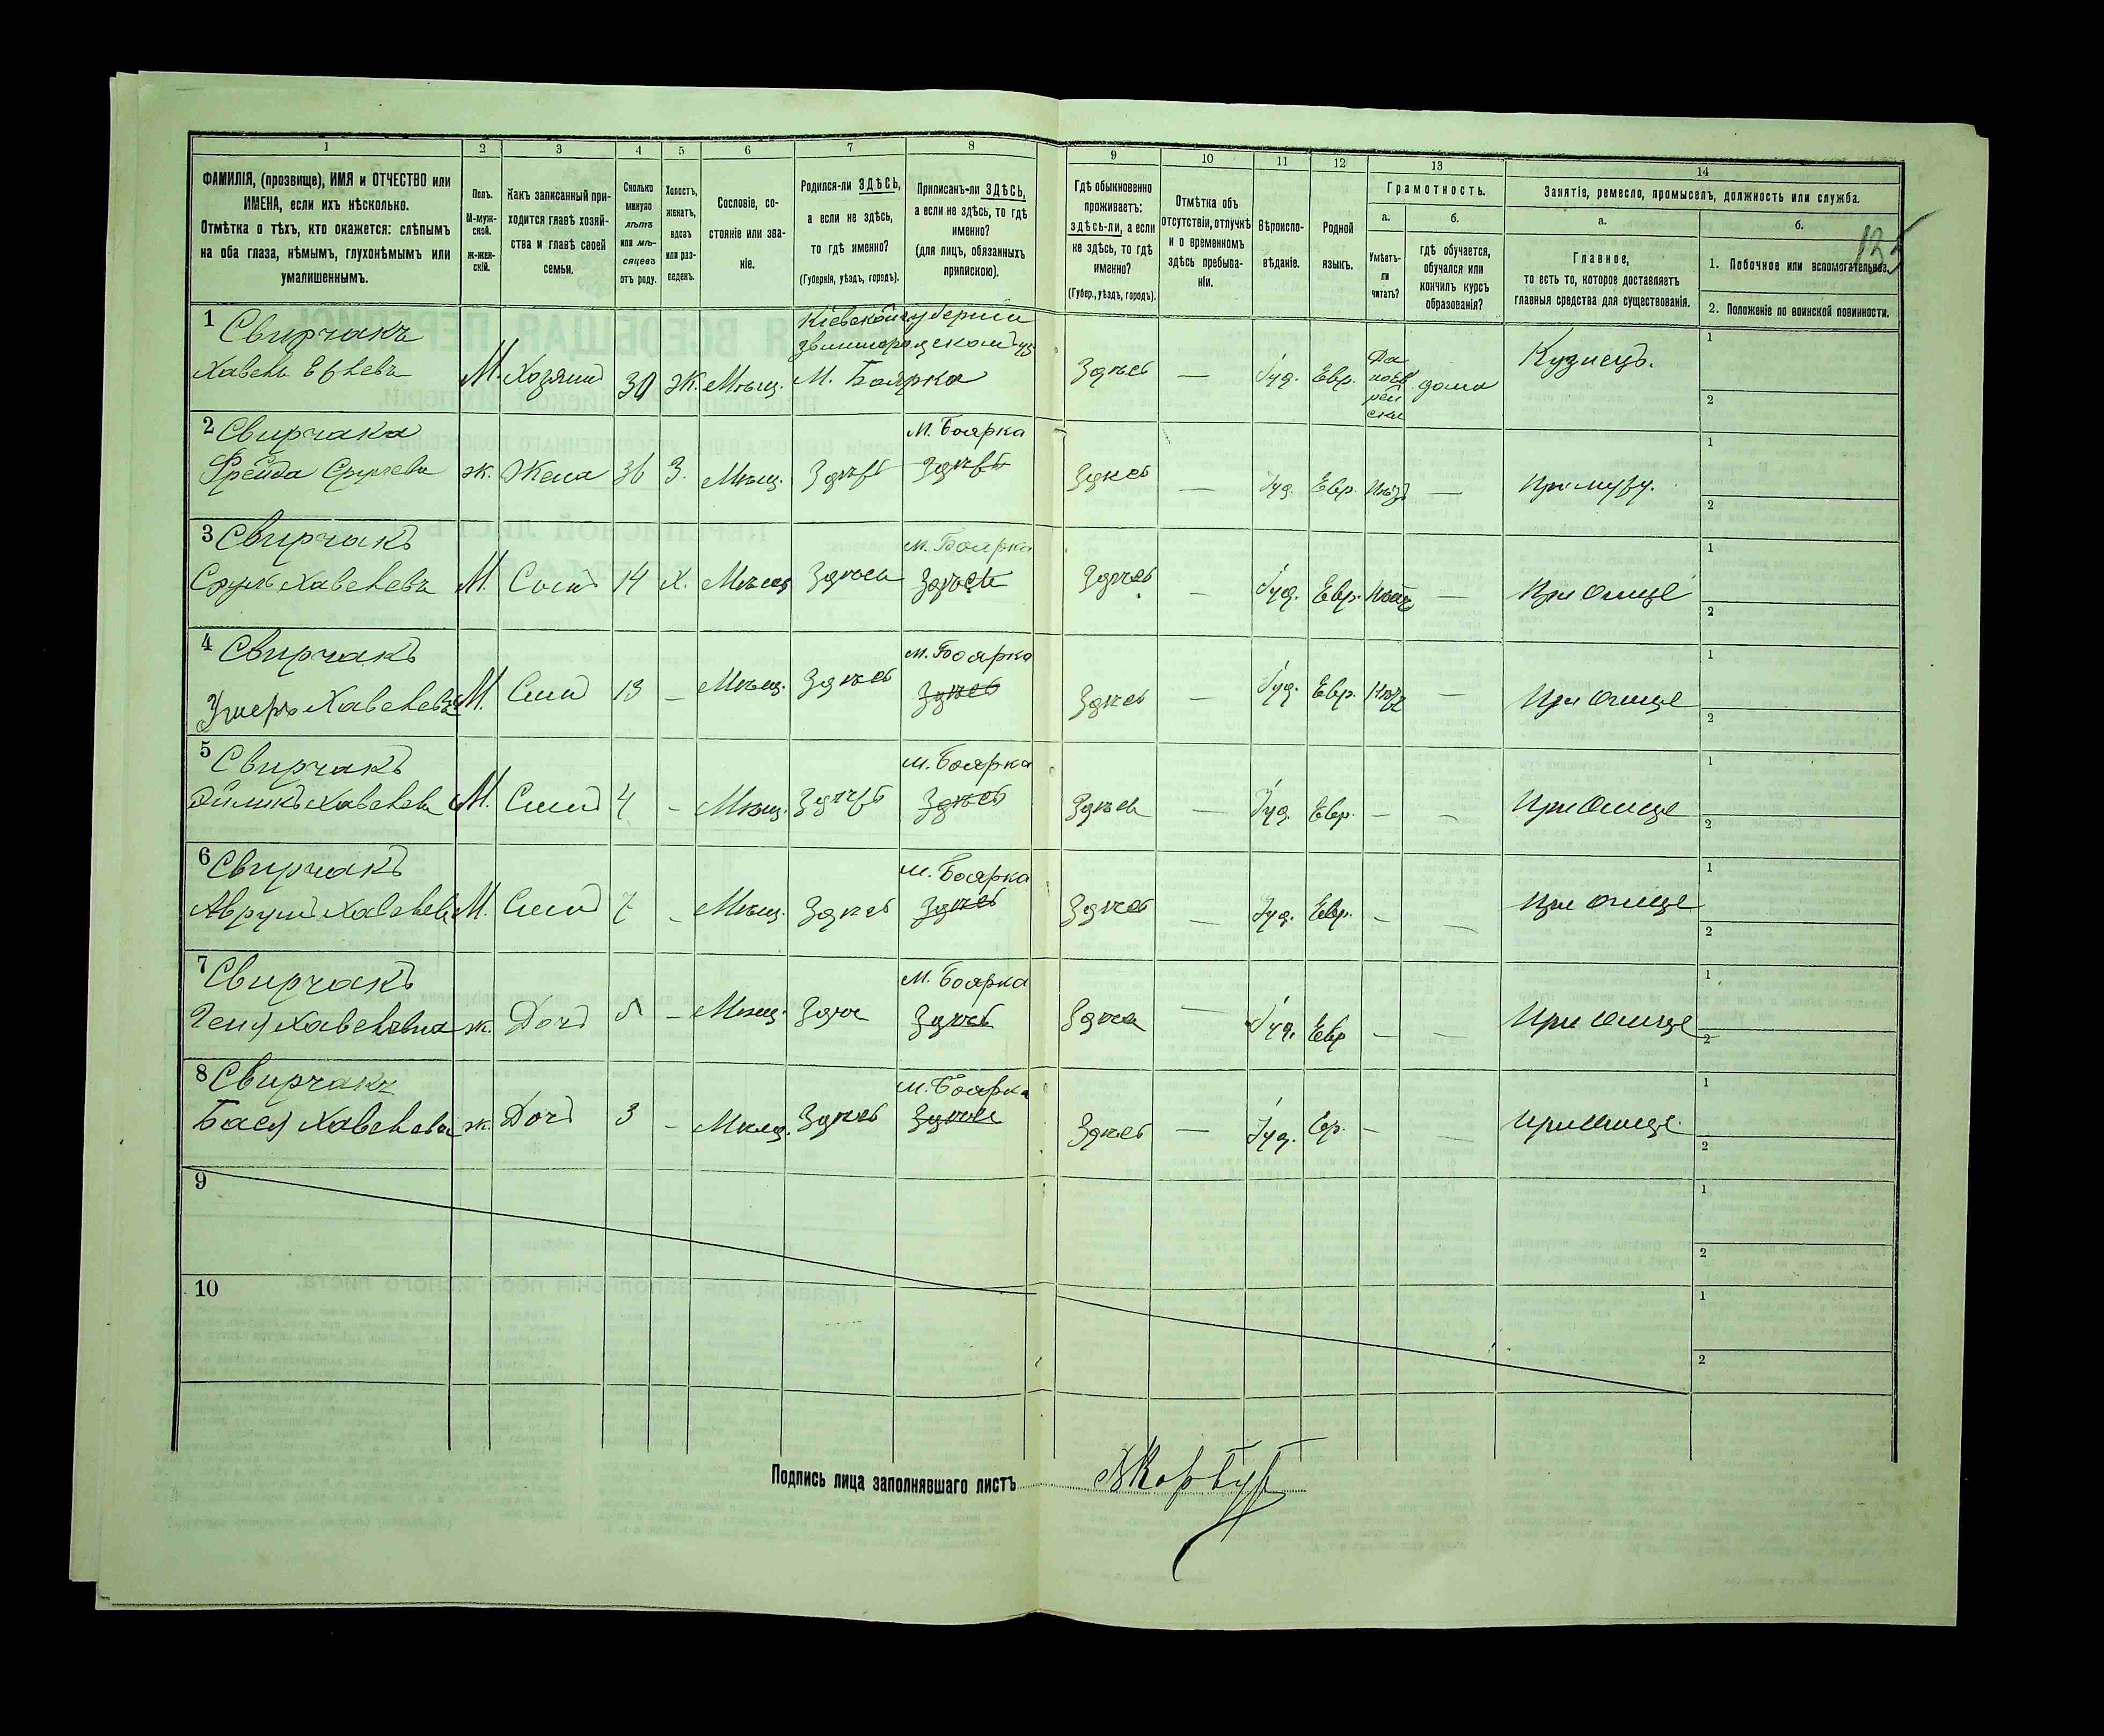 1 2 3 4 5 6 7 8 9 10 11 12 13 14
ФАМИЛІЯ, (прозвище), ИМЯ и ОТЧЕСТВО или
ИМЕНА, если ихъ нѣсколько.
Отмѣтка о тѣхъ, кто окажется: слѣпымъ
на оба глаза, нѣмымъ, глухонѣмымъ или
умалишеннымъ.
Полъ.
М-муж-
ской.
ж-жен-
скій.
Какъ записанный при-
ходится главѣ хозяй-
ства и главѣ своей
семьи.
Сколько
минуло
лѣтъ
или мѣ-
сяцевъ
отъ роду.
Холостъ,
женатъ,
вдовъ
или раз-
веденъ.
Сословіе, со-
стояніе или зва-
ніе.
Родился-ли ЗДѢСЬ,
а если не здѣсь,
то гдѣ именно?
(Губернія, уѣздъ, городъ).
Приписанъ-ли ЗДѢСЬ,
а если не здѣсь, то гдѣ
именно?
(для лицъ, обязанныхъ
припискою).
Гдѣ обыкновенно
проживаетъ:
здѣсь-ли, а если
не здѣсь, то гдѣ
именно?
(Губер., уѣздъ, городъ).
Отмѣтка объ
отсутствіи, отлучкѣ
и о временномъ
здѣсь пребыва-
ніи.
Вѣроиспо-
вѣданіе.
Родной
языкъ.
Грамотность.
а. б.
Умѣетъ-
ли
читать?
гдѣ обучается,
обучался или
кончилъ курсъ
образованія?
Занятіе, ремесло, промыселъ, должность или служба.
а. б.
Главное,
то есть то, которое доставляетъ
главныя средства для существованія.
1. Побочное или вспомогательное.
2. Положеніе по воинской повинности.
135
1 Свирчакъ Кіевской губерніи
М. Хозяинъ 30 Ж. Мѣщ. М. Боярка Здѣсь — Іуд. Евр. Да
дома Кузнецъ. 1 2
2 Свирчака М. Боярка
Фрейда ж. Жена 36 З. Мѣщ. Здѣсь Здѣсь Здѣсь — Іуд. Евр. — При мужу. 1 2
3 Свирчакъ М. Боярка
М. Сынъ 14 Х. Мѣщ Здѣсь Здѣсь Здѣсь — Іуд. Евр. — При отце 1 2
4 Свирчакъ м. Боярка
М. Сынъ 13 — Мѣщ. Здѣсь Здѣсь Здѣсь — Іуд. Евр. — При отце 1 2
5 Свирчакъ м. Боярка
М. Сынъ — Мѣщ. Здѣсь Здѣсь Здѣсь — Іуд. Евр. — — При отце 1 2
6 Свирчакъ м. Боярка
Аврумъ М. Сынъ 7 — Мѣщ. Здѣсь Здѣсь Здѣсь — Іуд. Евр. — — При отце 1 2
7 Свирчакъ М. Боярка
ж. Дочь — Мѣщ. Здѣсь Здѣсь Здѣсь — Іуд. Евр — — При отце 1 2
8 Свирчакъ М. Боярка
Бася ж. Дочь 3 — Мѣщ. Здѣсь Здѣсь Здѣсь — Іуд. Евр. — — При отце. 1 2
9 1 2
10 1 2
Подпись лица заполнявшаго листъ